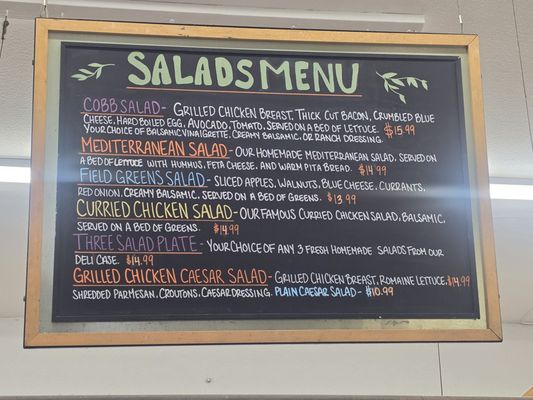 SALADS MENU
COBB SALAD - GRILLED CHICKEN BREAST, THICK CUT BACON, CRUMBLED BLUE
CHEESE, HARD BOILED EGG, AVOCADO, TOMATO, SERVED ON A BED OF LETTUCE. $15.99
YOUR CHOICE OF BALSAMIC VINAIGRETTE, CREAMY BALSAMIC, OR RANCH DRESSING.
MEDITERRANEAN SALAD - OUR HOMEMADE MEDITERRANEAN SALAD, SERVED ON
A BED OF LETTUCE WITH HUMMUS, FETA CHEESE, AND WARM PITA BREAD. $14.99
FIELD GREENS SALAD - SLICED APPLES, WALNUTS, BLUE CHEESE, CURRANTS,
RED ONION, CREAMY BALSAMIC, SERVED ON A BED OF GREENS. $13.99
CURRIED CHICKEN SALAD - OUR FAMOUS CURRIED CHICKEN SALAD, BALSAMIC,
SERVED ON A BED OF GREENS. $14.99
THREE SALAD PLATE - YOUR CHOICE OF ANY 3 FRESH HOMEMADE SALADS FROM OUR
DELI CASE. $14.99
GRILLED CHICKEN CAESAR SALAD - GRILLED CHICKEN BREAST, ROMAINE LETTUCE, $14.99
SHREDDED PARMESAN, CROUTONS, CAESAR DRESSING. PLAIN CAESAR SALAD - $10.99